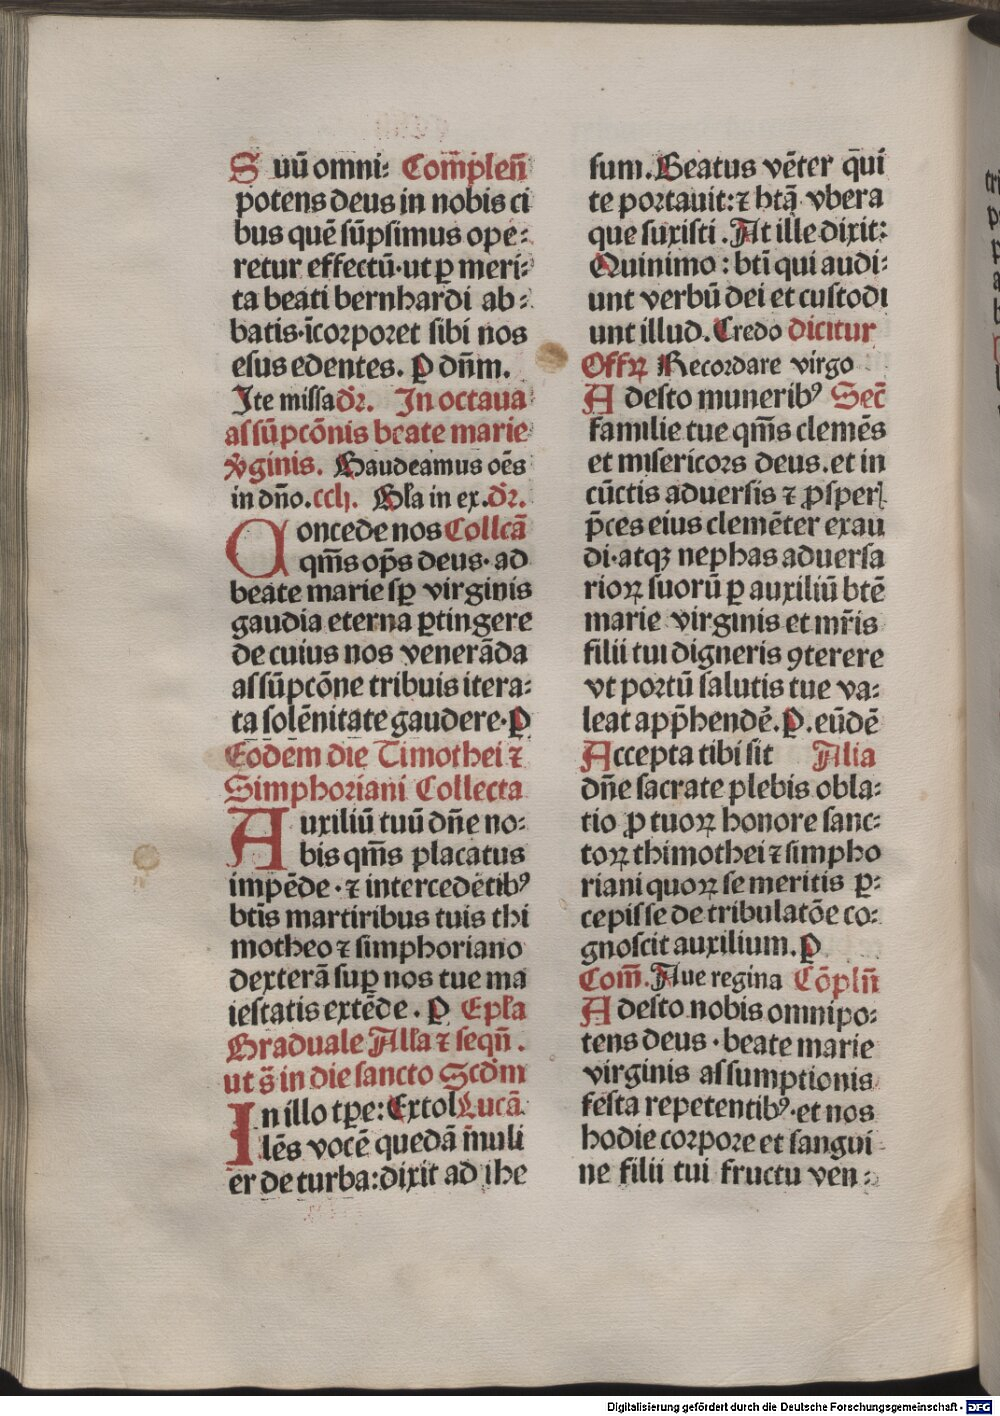 Suū omni⸗ Com̄plen̄
potens deus in nobis ci
bus quē sūpsimus ope⸗
retur effectū·ut ꝑ meri⸗
ta beati bernhardi ab⸗
batis·īcorporet sibi nos
esus edentes. P dn̄m.
Ite missa dr̄. In octaua
assūptōnis beate marie
v̓ginis. Gaudeamus oēs
in dn̄o. cclj. Gl̄a in ex. dr̄.
Concede nos Collcā
qm̄s op̄s deus· ad
beate marie sꝑ virginis
gaudia eterna ꝑtingere
de cuius nos venerāda
assūptōne tribuis itera⸗
ta solēnitate gaudere· P
Eodem die Timothei ⁊
Simphoriani Collecta
Auxiliū tuū dn̄e no⸗
bis qm̄s placatus
impēde·⁊ intercedētib⁹
btīs martiribus tuis thi
motheo ⁊ simphoriano
dexterā suꝑ nos tue ma
iestatis extēde. P Epl̄a
Graduale All̄a ⁊ seqn̄.
ut s̄ in die sancto Scdm
In illo tꝑe: Extol Lucā
lēs vocē quedā m̄uli
er de turba: dixit ad ihe
sum. Beatus vēter q̄ui
te portauit: ⁊ btā vbera
que suxisti. At ille dixit:
Quinimo: btī qui audi⸗
unt verbū dei et custodi
unt illud. Credo dicitur
Offꝝ Recordare virgo
Adesto munerib⁹ Sec̄
familie tue qm̄s clemēs
et misericors deus. et in
cūctis aduersis ⁊ ꝓsperꝭ
p̄ces eius clemēter exau
di·atqꝫ nephas aduersa
rioꝝ suorū ꝑ auxiliū btē
marie virginis et mr̄is
filii tui digneris ꝯterere
vt portū salutis tue va⸗
leat app̄hendē. P. eūdē
Accepta tibi sit Alia
dn̄e sacrate plebis obla⸗
tio ꝓ tuoꝝ honore sanc⸗
toꝝ thimothei ⁊ simpho
riani quoꝝ se meritis ꝑ⸗
cepisse de tribulatōe co⸗
gnoscit auxilium. P
Com̄. Aue regina Cōpln̄
Adesto nobis omnipo⸗
tens deus·beate marie
virginis assumptionis
festa repetentib⁹·et nos
hodie corpore et sangui
ne filii tui fructu ven⸗
Digitalisierung gefördert durch die Deutsche Forschungsgemeinschaft - DFG